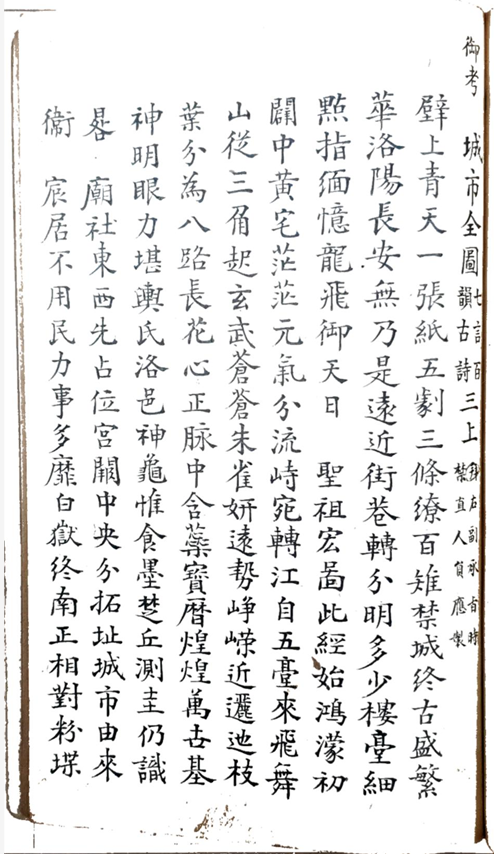 御考 城市全圖 七言百韻古詩 三上 禁直人員應製
壁上青天一張紙五劇三條繚百雉禁城終古盛繁
華洛陽長安無乃是遠近街巷轉分明多少樓臺細
㸃指緬憶龍飛御天日 聖祖宏啚此經始鴻濛初
闢中黃宅茫茫元氣分流峙宛轉江自五臺來飛舞
山從三角起玄武蒼蒼朱雀妍遠勢崢嶸近邐迆枝
葉分為八路長花心正脉中含蘂寶曆煌煌萬世基
神明眼力堪輿氏洛邑神龜惟食墨楚丘測圭仍識
晷 廟社東西先占位宮闕中央分拓址城市由來
衛 宸居不用民力事多靡白嶽終南正相對粉堞